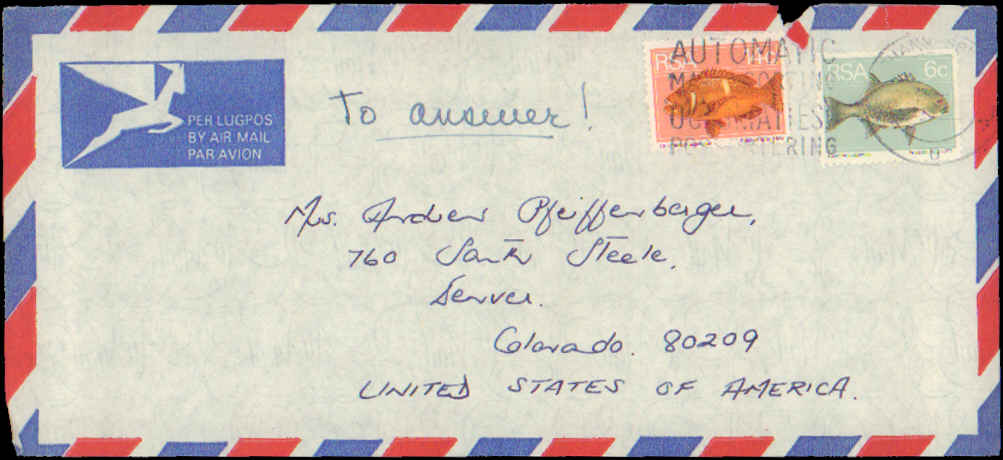 PER LUGPOS
BY AIR MAIL
PAR AVION
To answer!
RSA
RSA 6c
AUTOMATIC
Mrs. Andrew Pfeiffenberger,
760 South Steele,
Denver.
Colorado. 80209
UNITED STATES OF AMERICA.